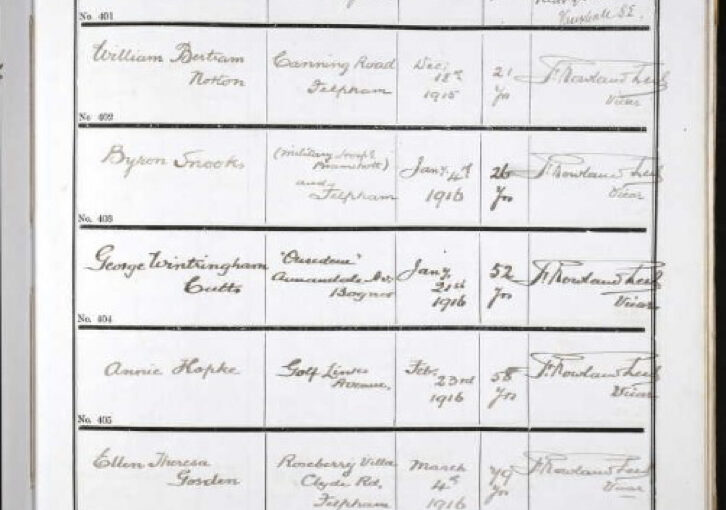 No. 401
Vauxhall S.E.
William Bertram Norton
Canning Road Felpham
Dec. 18th 1915
21 yrs
Vicar
No. 402
Byron Snooks
(Military Hosp. Bramshott) and Felpham
Jany. 4th 1916
26 yrs
Vicar
No. 403
George Wintringham Cutts
Annandale Av. Bognor
Jany. 21st 1916
52 yrs
Vicar
No. 404
Annie Hopke
Golf Links Avenue,
Feb. 23rd 1916
58 yrs
Vicar
No. 405
Ellen Theresa Gosden
Roseberry Villa Clyde Rd, Felpham
March 4th 1916
79 yrs
Vicar